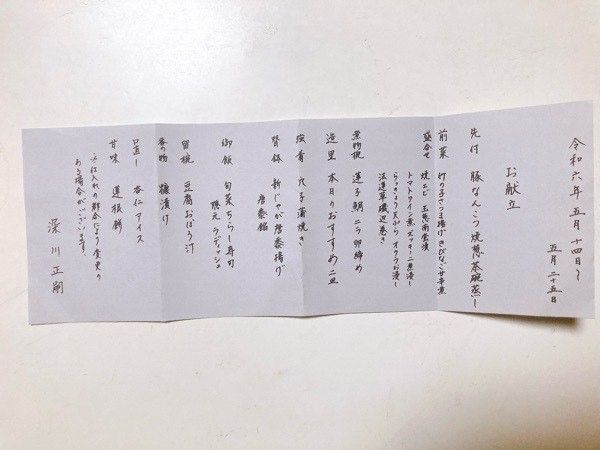 令和六年五月十四日〜
五月二十五日
お献立
先付 豚なんこつ焼葱茶碗蒸し
前菜 竹の子さつま揚げ きびなご甘辛煮
盛合せ 焼エビ 玉葱南蛮漬
トマトワイン煮 ズッキーニ煮浸し
らっきょう天ぷら オクラお浸し
法蓮草磯辺巻き
煮物椀 蓮子鯛 ニラ卵締め
造里 本日のおすすめ二皿
強肴 穴子蒲焼き
腎鉢 新じゃが唐黍揚げ
唐黍餡
御飯 旬菜ちらし寿司
隠元 ラディッシュ
留椀 豆腐おぼろ汁
香の物 糠漬け
口直し 杏仁アイス
甘味 蓮根餅
※仕入れの都合により変更の
ある場合がございます。
深川正嗣